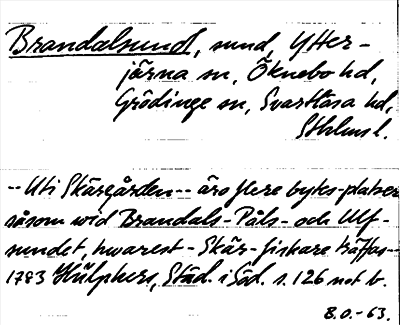 Brandalsund, sund, Ytter-
järna sn, Öknebo hd,
Grödinge sn, Svartlösa hd,
Sthlms l.
-- Uti Skärgården -- äro flere bytes-platser
såsom wid Brandals- Påls- och Ulf-
sundet, hwarest - Skär-fiskare träffas --
1783 Hülphers, Städ. i Söd. s. 126 not b.
B.O.-63.